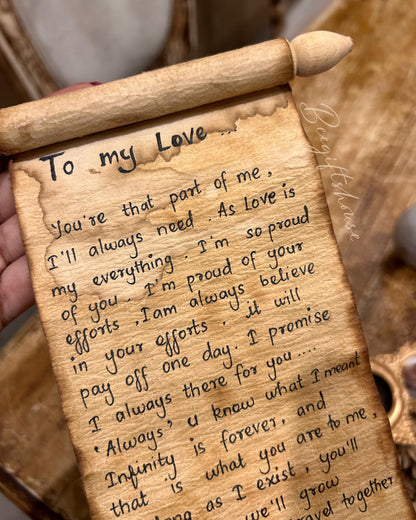 To my Love ...
You're that part of me,
I'll always need. As Love is
my everything. I'm so proud
of you. I'm proud of your
efforts, I am always believe
in your efforts. it will
pay off one day. I promise
I always there for you ....
'Always' u know what I meant
Infinity is forever, and
that is what you are to me,
long as I exist, you'll
we'll grow
travel together
Beegiftshouse